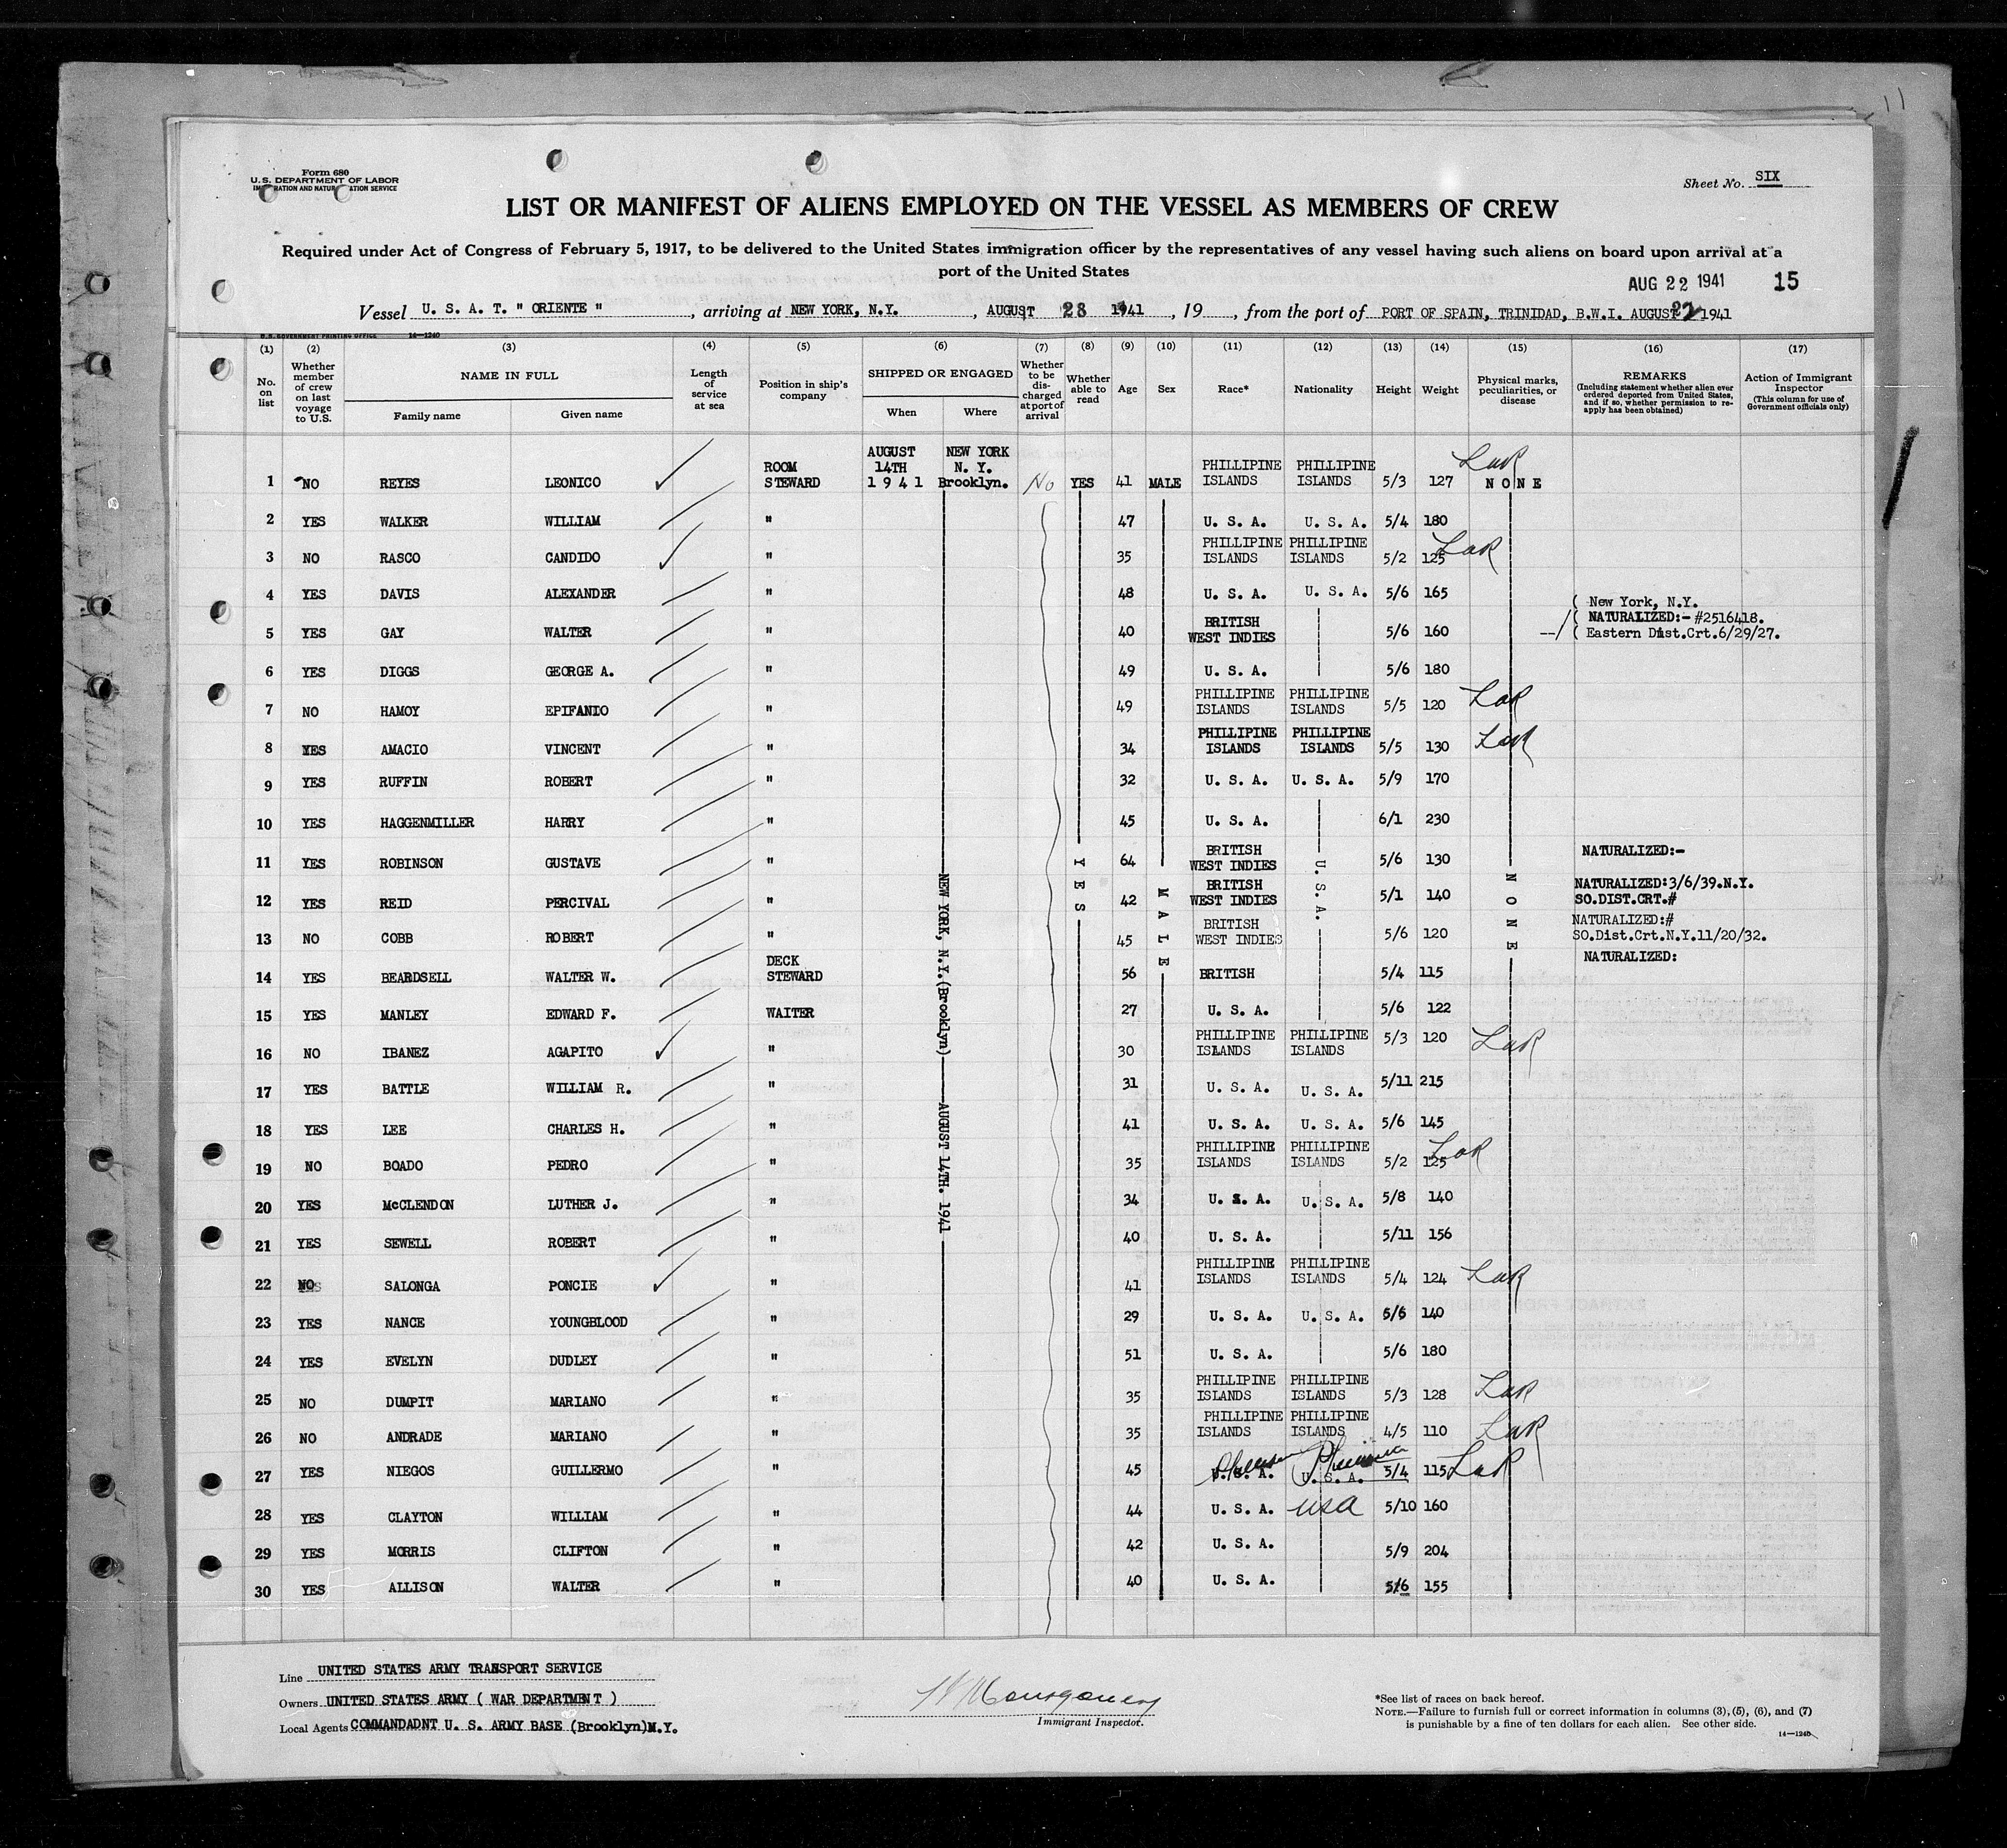 Form 680
U.S. DEPARTMENT OF LABOR
IMMIGRATION AND NATURALIZATION SERVICE
Sheet No. SIX
LIST OR MANIFEST OF ALIENS EMPLOYED ON THE VESSEL AS MEMBERS OF CREW
Required under Act of Congress of February 5, 1917, to be delivered to the United States immigration officer by the representatives of any vessel having such aliens on board upon arrival at a
port of the United States
AUG 22 1941 15
Vessel U. S. A. T. " ORIENTE " , arriving at NEW YORK, N.Y. , AUGUST 23 1941 , 19 , from the port of PORT OF SPAIN, TRINIDAD, B.W.I. AUGUST 22 1941
U.S. GOVERNMENT PRINTING OFFICE 14—1240
(1) (2) (3) (4) (5) (6) (7) (8) (9) (10) (11) (12) (13) (14) (15) (16) (17)
No. on list
Whether member of crew on last voyage to U.S.
NAME IN FULL
Family name Given name
Length of service at sea
Position in ship's company
SHIPPED OR ENGAGED
When Where
Whether to be discharged at port of arrival
Whether able to read
Age Sex Race* Nationality Height Weight
Physical marks, peculiarities, or disease
REMARKS
(Including statement whether alien ever ordered deported from United States, and if so, whether permission to reapply has been obtained)
Action of Immigrant Inspector
(This column for use of Government officials only)
1 NO REYES LEONICO ROOM STEWARD AUGUST 14TH 1941 NEW YORK N. Y. Brooklyn. No YES 41 MALE PHILLIPINE ISLANDS PHILLIPINE ISLANDS 5/3 127 NONE
2 YES WALKER WILLIAM " 47 U. S. A. U. S. A. 5/4 180
3 NO RASCO CANDIDO " 35 PHILLIPINE ISLANDS PHILLIPINE ISLANDS 5/2 125
4 YES DAVIS ALEXANDER " 48 U. S. A. U. S. A. 5/6 165
5 YES GAY WALTER " 40 BRITISH WEST INDIES 5/6 160 --/ ( New York, N.Y. ( NATURALIZED:- #2516418. ( Eastern Dist.Crt.6/29/27.
6 YES DIGGS GEORGE A. " 49 U. S. A. 5/6 180
7 NO HAMOY EPIFANIO " 49 PHILLIPINE ISLANDS PHILLIPINE ISLANDS 5/5 120
8 YES AMACIO VINCENT " 34 PHILLIPINE ISLANDS PHILLIPINE ISLANDS 5/5 130
9 YES RUFFIN ROBERT " 32 U. S. A. U. S. A. 5/9 170
10 YES HAGGENMILLER HARRY " 45 U. S. A. 6/1 230
11 YES ROBINSON GUSTAVE " 64 BRITISH WEST INDIES 5/6 130 NATURALIZED:-
12 YES REID PERCIVAL " 42 BRITISH WEST INDIES 5/1 140 NATURALIZED:3/6/39.N.Y. SO.DIST.CRT.#
13 NO COBB ROBERT " 45 BRITISH WEST INDIES 5/6 120 NATURALIZED:# SO.Dist.Crt.N.Y.11/20/32.
14 YES BEARDSELL WALTER W. DECK STEWARD 56 BRITISH 5/4 115 NATURALIZED:
15 YES MANLEY EDWARD F. WAITER 27 U. S. A. 5/6 122
16 NO IBANEZ AGAPITO " 30 PHILLIPINE ISLANDS PHILLIPINE ISLANDS 5/3 120
17 YES BATTLE WILLIAM R. " 31 U. S. A. U. S. A. 5/11 215
18 YES LEE CHARLES H. " 41 U. S. A. U. S. A. 5/6 145
19 NO BOADO PEDRO " 35 PHILLIPINE ISLANDS PHILLIPINE ISLANDS 5/2 125
20 YES McCLENDON LUTHER J. " 34 U. S. A. U. S. A. 5/8 140
21 YES SEWELL ROBERT " 40 U. S. A. 5/11 156
22 NO SALONGA PONCIE " 41 PHILLIPINE ISLANDS PHILLIPINE ISLANDS 5/4 124
23 YES NANCE YOUNGBLOOD " 29 U. S. A. U. S. A. 5/6 140
24 YES EVELYN DUDLEY " 51 U. S. A. 5/6 180
25 NO DUMPIT MARIANO " 35 PHILLIPINE ISLANDS PHILLIPINE ISLANDS 5/3 128
26 NO ANDRADE MARIANO " 35 PHILLIPINE ISLANDS PHILLIPINE ISLANDS 4/5 110
27 YES NIEGOS GUILLERMO " 45 U. S. A. U. S. A. 5/4 115
28 YES CLAYTON WILLIAM " 44 U. S. A. USA 5/10 160
29 YES MORRIS CLIFTON " 42 U. S. A. 5/9 204
30 YES ALLISON WALTER " 40 U. S. A. 5/6 155
NEW YORK, N.Y.(Brooklyn) AUGUST 14TH. 1941
YES
MALE
U.S.A.
NONE
Line UNITED STATES ARMY TRANSPORT SERVICE
Owners UNITED STATES ARMY ( WAR DEPARTMENT )
Local Agents COMMANDADNT U. S. ARMY BASE (Brooklyn)N.Y.
Montgomery
Immigrant Inspector.
*See list of races on back hereof.
NOTE.—Failure to furnish full or correct information in columns (3), (5), (6), and (7)
is punishable by a fine of ten dollars for each alien. See other side.
14—1240